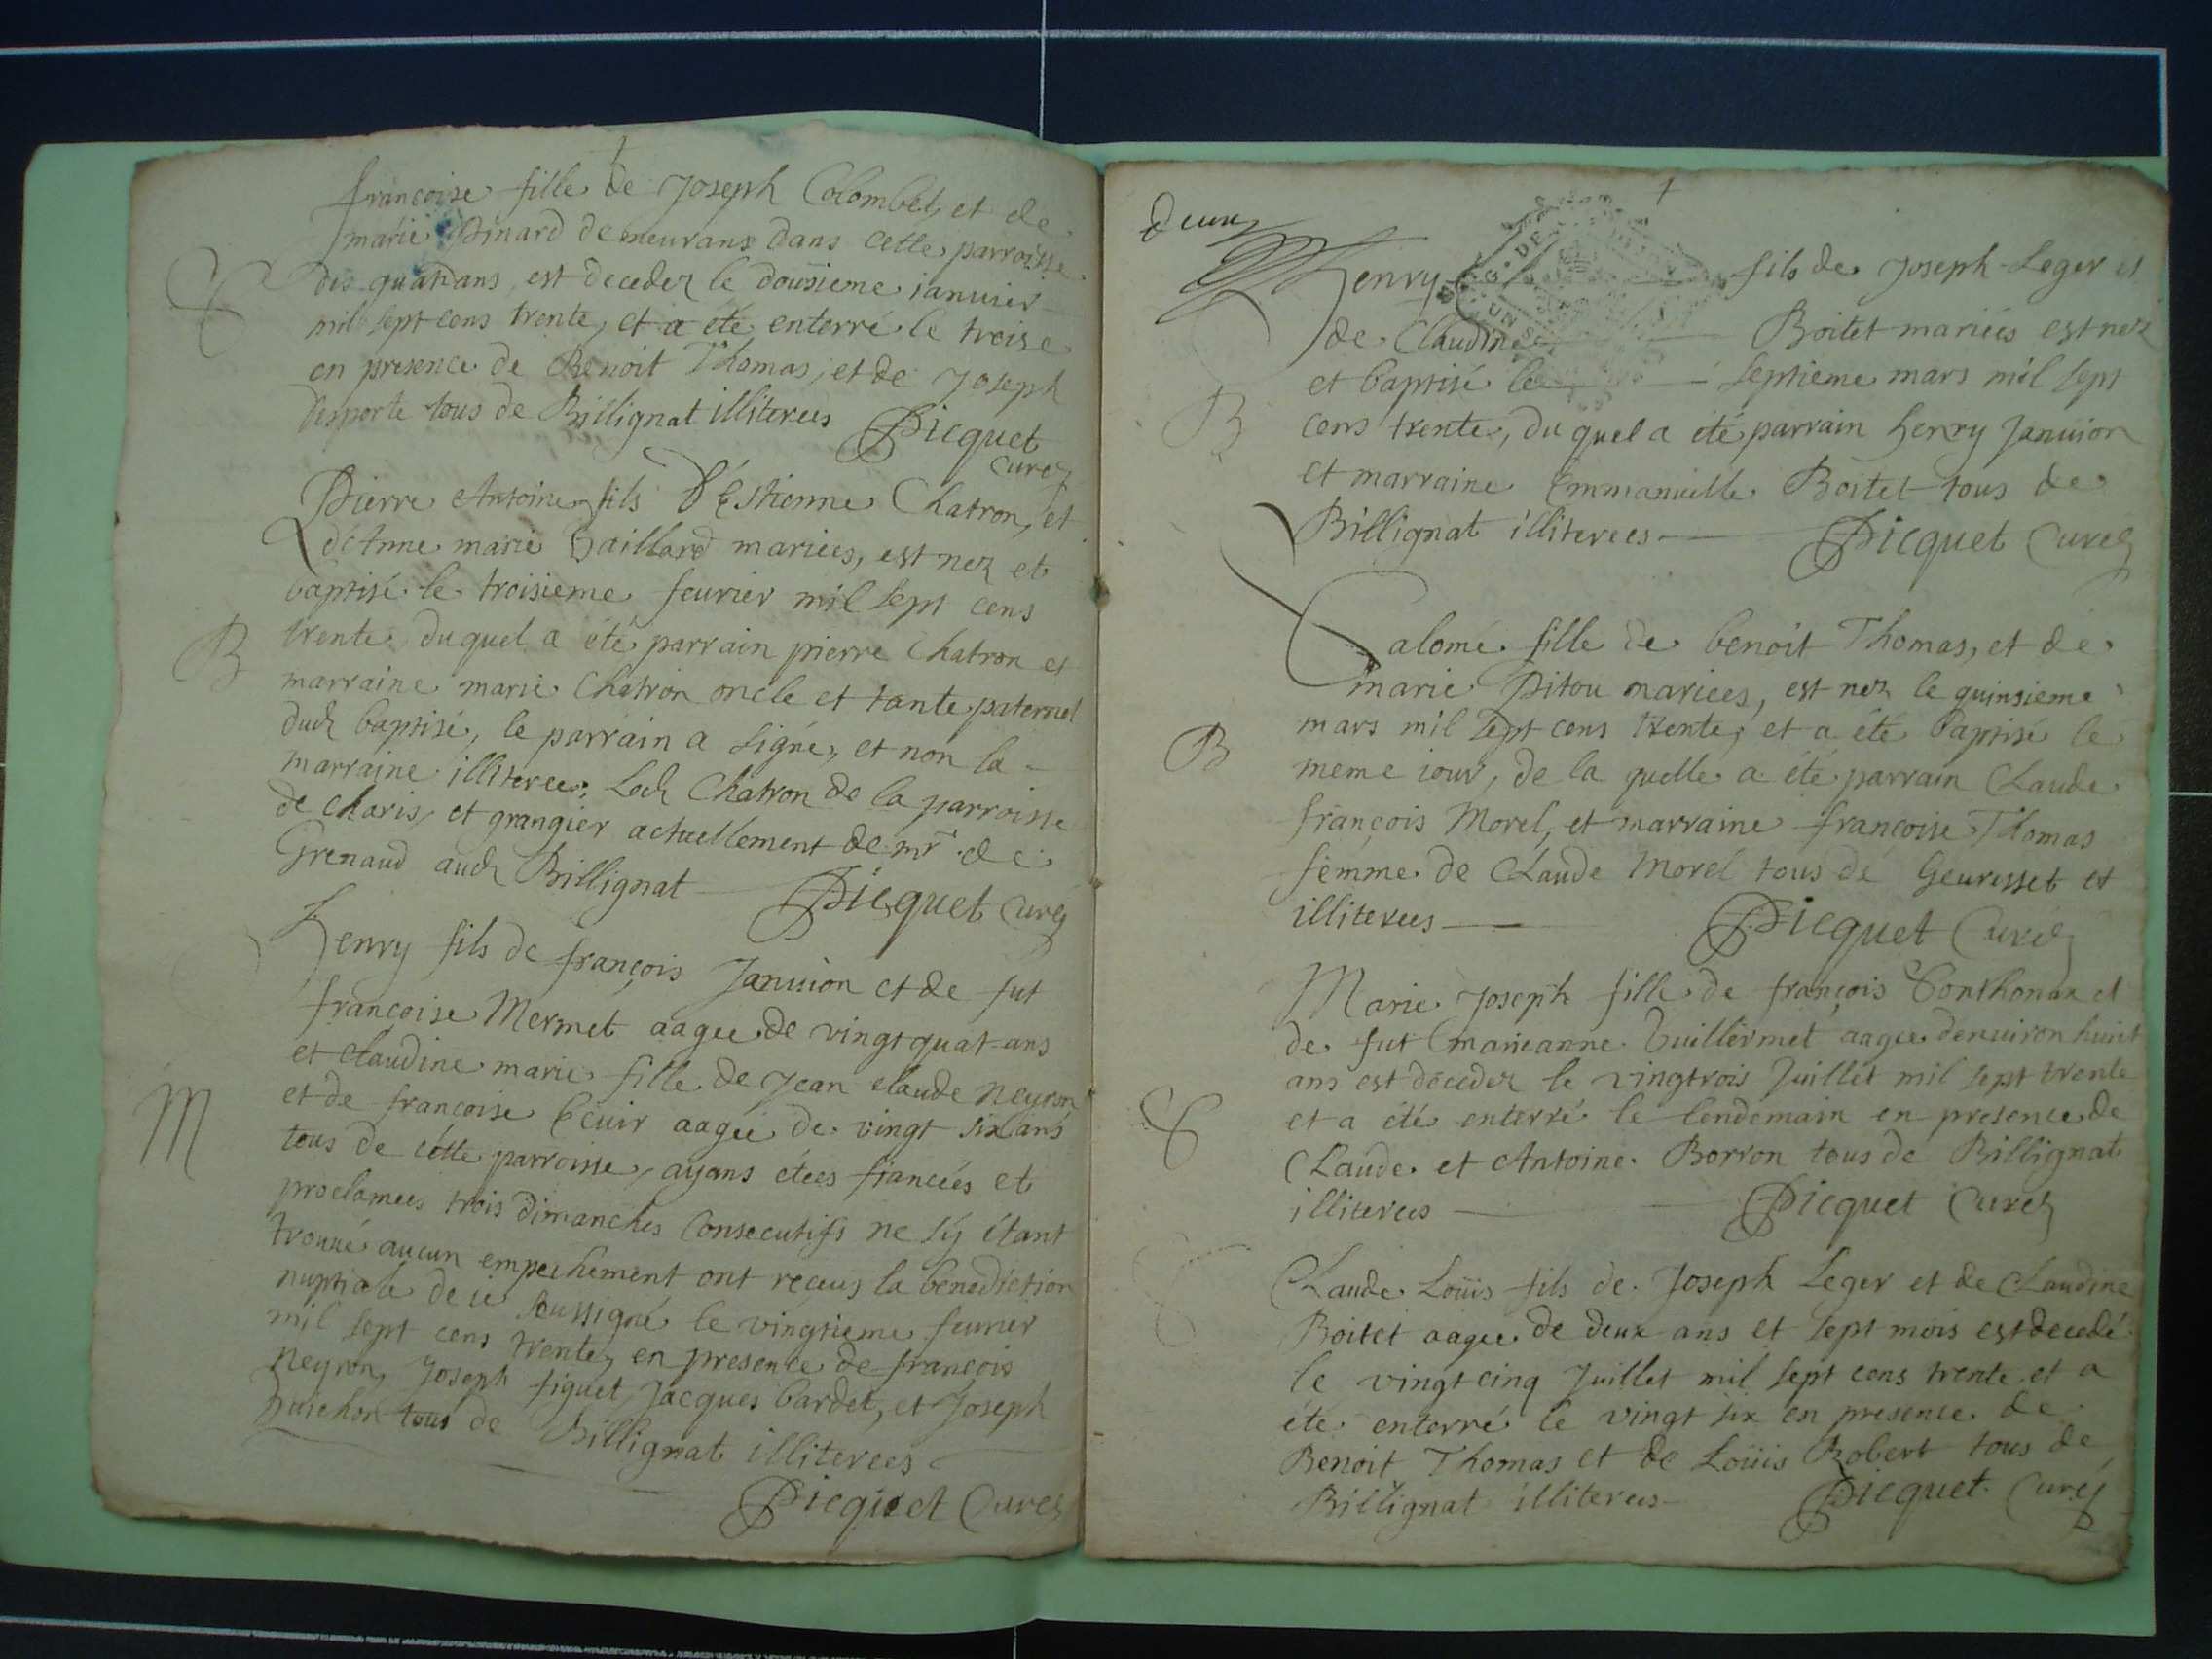 françoise fille de Joseph Colombet, et de
marie Pinard demeurans dans cette parroisse
dis quatr ans, est decedez le dousieme ianuier
mil sept cens trente, et a eté enterré le treise
en presence de Benoit Thomas, et de Joseph
Desporte tous de Billignat illiterees Picquet
Curez
Pierre Antoine fils d'Estienne Chatron, et
d'Anne marie Baillard mariees, est nez et
baptisé le troisieme feurier mil sept cens
B trente, du quel a été parrain pierre Chatron et
marraine marie Chatron oncle et tante paternel
dudz baptisé, le parrain a signé, et non la -
marraine illiteree; Ledz Chatron de la parroisse
de Charis, et grangier actuellement de mr de
Grenaud audz Billignat Picquet Curez
henry fils de françois Januion et de fut
françoise Mermet aagee de vingt quat ans
et Claudine marie fille de Jean Claude neyron
et de françoise Ecuir aagée de vingt six ans
M tous de cette parroisse, ayans étees fiancéés et
proclamees trois dimanches Consecutifs ne s'ÿ étant
trouué aucun empechement ont receus la benediction
nuptiale de ie soussigné le vingtieme feurier
mil sept cens trente, en presence de françois
neyron, Joseph figuet, Jacques Bardet, et Joseph
huichon tous de Billignat illiterees
Picquet Curez
deux
henry fils de Joseph Leger et
de Claudine Boitet mariées est nez
et baptisé le septieme mars mil sept
B cens trente, du quel a été parrain henry Januion
et marraine Emmanuelle Boitet tous de
Billignat illiterees Picquet Curez
Salomé fille de benoit Thomas, et de
marie Pitou mariees, est nez le quinsieme
mars mil sept cens trente, et a été baptisé le
B meme iour, de la quelle a été parrain Claude
françois Morel, et marraine françoise Thomas
femme de Claude Morel tous de Geurisset et
illiterees Picquet Curez
Marie Joseph fille de françois Conthonax et
de fut marieanne Vuillermet aagee denuiron huit
ans est décedez le vingtrois Juillet mil sept trente
et a été enterré le lendemain en presence de
Claude et Antoine Borron tous de Billignat
illiterees Picquet Curez
Claude Loüis fils de Joseph Leger et de Claudine
Boitet aagee de deux ans et sept mois est decedé
le vingt cinq Juillet mil sept cens trente et a
éte enterré le vingt six en presence de
Benoit Thomas et de Loüis Robert tous de
Billignat illiterees Picquet Curez